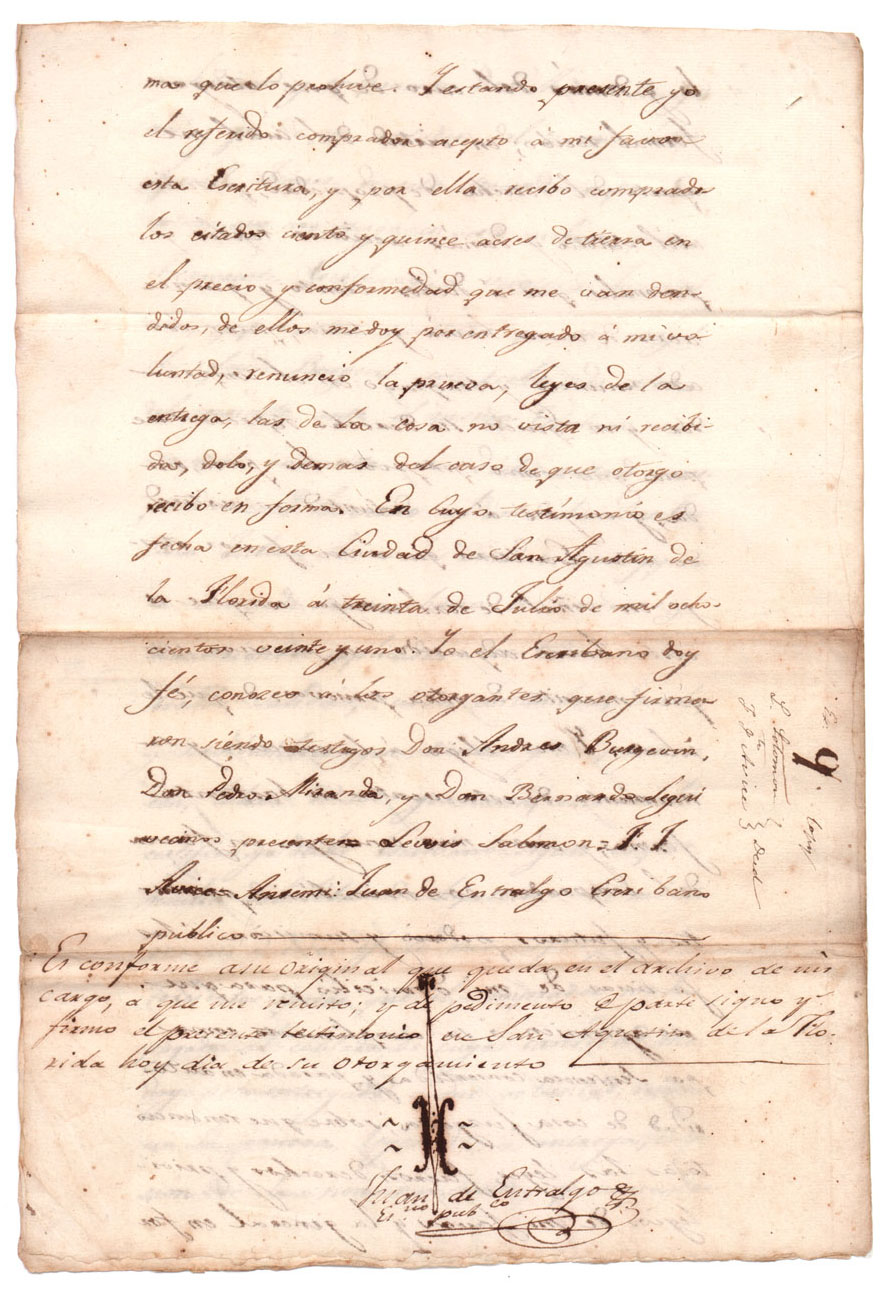 ma que lo prohive. Y estando presente yo
el referido comprador acepto a mi favor
esta Escritura, y por ella recibo comprado
los citados ciento y quince acres de tierra en
el precio y conformidad que me van ven-
didos, de ellos me doy por entregado á mi vo
luntad, renuncio la prueva, leyes de la
entrega, las de la cosa no vista ni recibi-
da, dolo, y demas del caso de que otorgo
recibo en forma. En cuyo testimonio es
fecha en esta Ciudad de San Agustin de
la Florida á treinta de Julio de mil ocho-
cientos veinte y uno. Yo el Escribano doy
fé, conozco á los otorgantes que firma
ron siendo testigos Don Andres Burgevin,
Don Pedro Miranda, y Don Bernardo Segui
vecinos presentes = Lewis Salomon = J. J.
Avice = Antemi: Juan de Entralgo Escribano
publico
Es conforme a su original que queda en el archivo de mi
cargo, a que me remito; y de pedimento de parte signo y
firmo el presente testimonio en San Agustin de la Flo-
rida hoy dia de su otorgamiento
Juan de Entralgo
Esno pubco
9.
L. Solomon
to
J. J. Avice
Deed
Copy